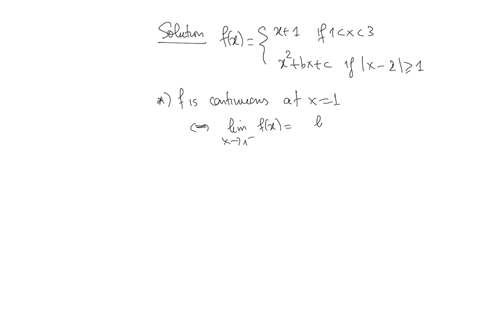 Solution f(x) = { x+1 if 1<x<3
x²+bx+c if |x-2|≥1
*) f is continuous at x=1
⇔ lim f(x) = l
x→1⁻